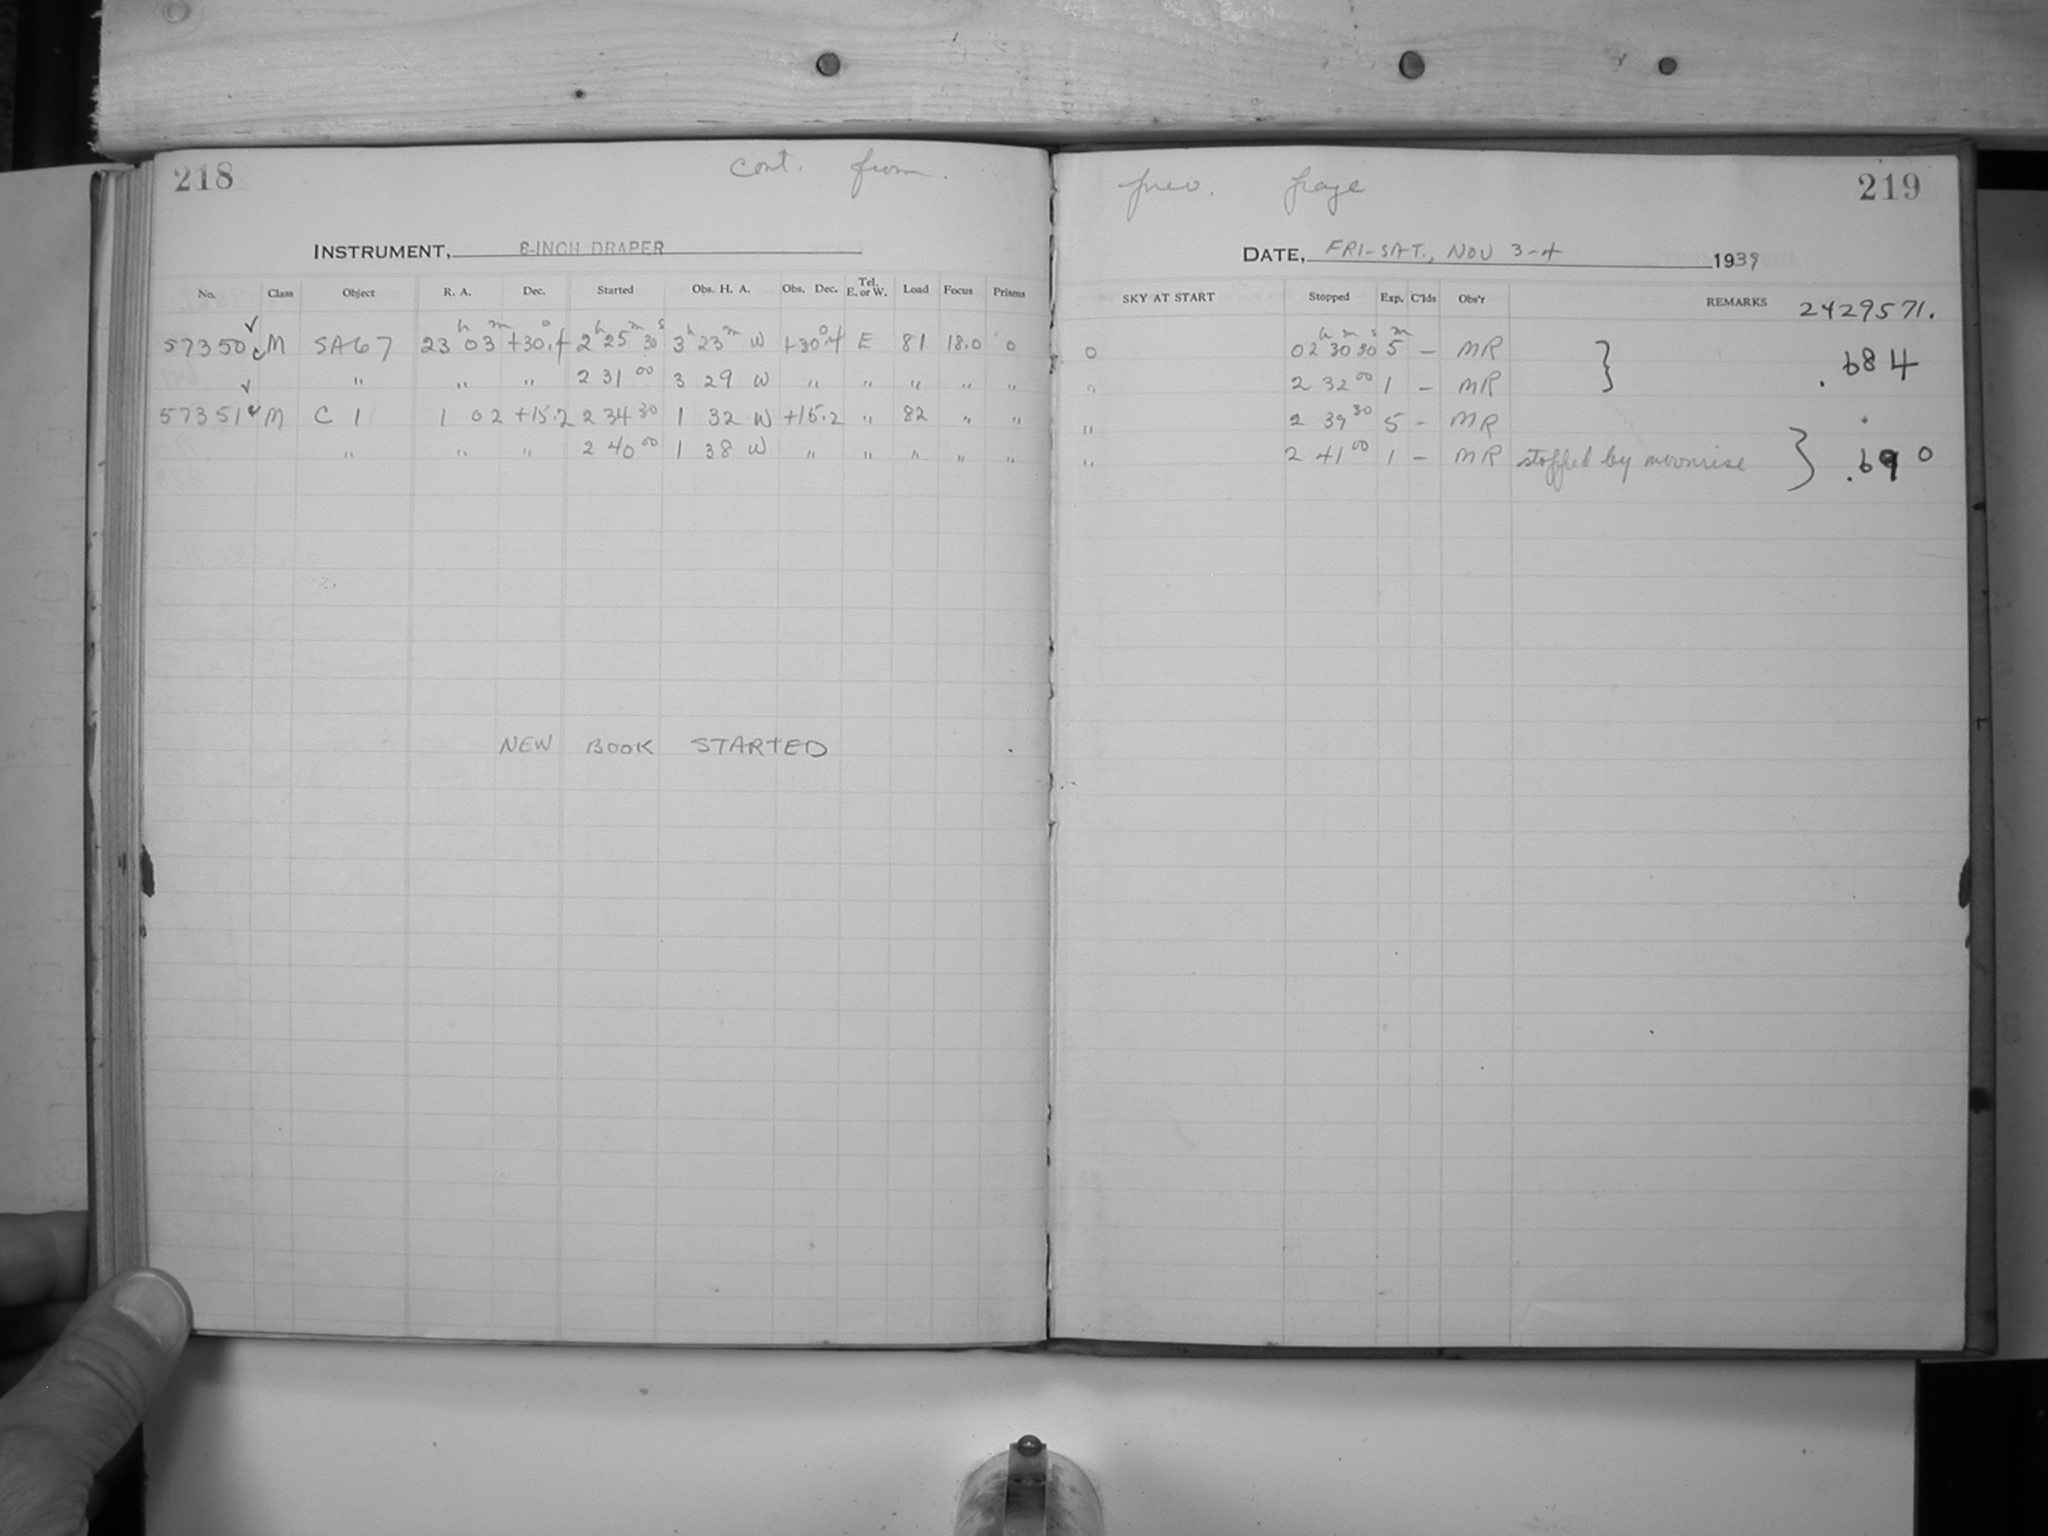 218 cont. from.
INSTRUMENT, 8-INCH DRAPER
No. Class Object R. A. Dec. Started Obs. H. A. Obs. Dec. Tel. E. or W. Load Focus Prisms
57350 M SA67 23h 03m +30°.4 2h 25m 30s 3h 23m W +30°.4 E 81 18.0 0
" " " 2 31 00 3 29 W " " " " "
57351 M C 1 1 02 +15.2 2 34 30 1 32 W +15.2 " 82 " "
" " " 2 40 00 1 38 W " " " " "
NEW BOOK STARTED
prev. page 219
DATE, FRI-SAT., NOV 3-4 1939
SKY AT START Stopped Exp. C'lds Obs'r REMARKS 2429571.
0 02h 30m 30s 5m – MR } .684
" 2 32 00 1 – MR
" 2 39 30 5 – MR
" 2 41 00 1 – MR stopped by moonrise } .690